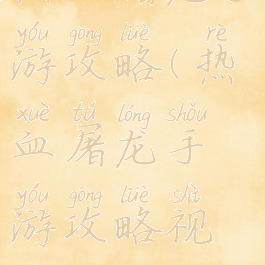 yóu gōng lüè rè
游攻略(热
xuè tú lóng shǒu
血屠龙手
yóu gōng lüè shì
游攻略视